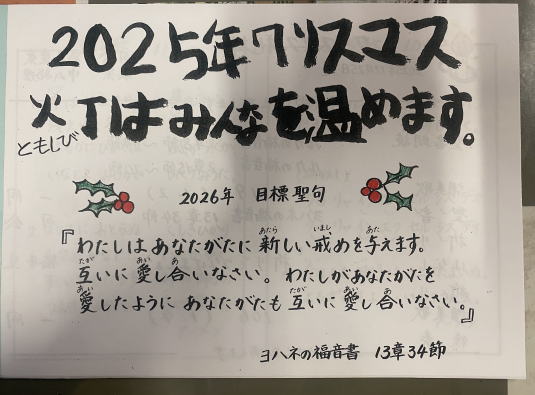 2025年クリスマス
火丁はみんなを温めます。
ともしび
2026年 目標聖句
『わたしはあなたがたに新しい戒めを与えます。
互いに愛し合いなさい。わたしがあなたがたを
愛したようにあなたがたも互いに愛し合いなさい。』
ヨハネの福音書 13章34節